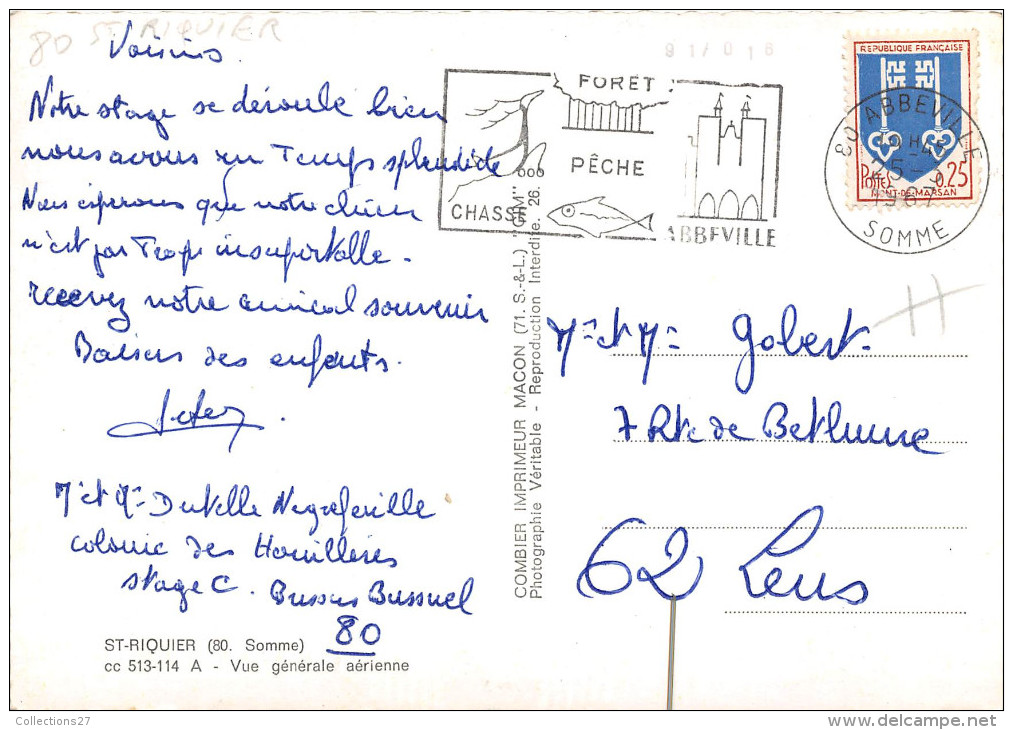 80 ST RIQUIER
Voisins
Notre stage se déroule bien
nous avons un Temps splendide
Nous espérons que notre chien
n'est pas Trop insuportable -
recevez notre amical souvenir
Baisers des enfants.
Mr et Me
colonie des Houillères
stage C. Bussus Bussuel
80
ST-RIQUIER (80. Somme)
cc 513-114 A - Vue générale aérienne
COMBIER IMPRIMEUR MACON (71. S.-&-L.) "CIM"
Photographie Véritable - Reproduction Interdite. 26.
FORÊT
PÊCHE
CHASSE
ABBEVILLE
REPUBLIQUE FRANÇAISE
Postes 0.25
MONT-DE-MARSAN
80 ABBEVILLE
1967
SOMME
Mr et Me Gobert
7 Rte de Bethune
62 Lens
H
Collections27
delcampe.net